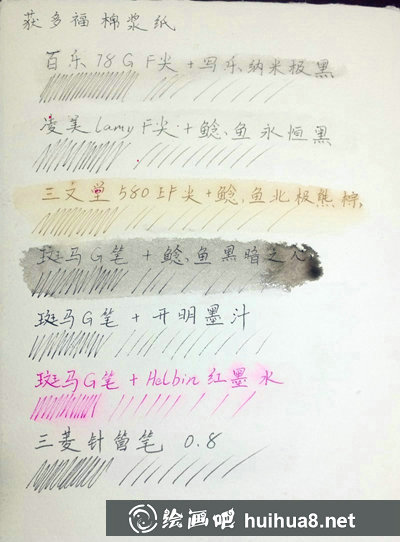 获多福 棉浆纸
百乐 78G F尖 + 写乐纳米极黑
凌美lamy F尖 + 鲶.鱼永恒黑
三文堂 580 EF尖 + 鲶.鱼北极熊棕
斑马G笔 + 鲶.鱼黑暗之心
斑马G笔 + 开明墨汁
斑马G笔 + Helbin 红墨水
三菱针管笔 0.8
绘画吧 huihua8.net